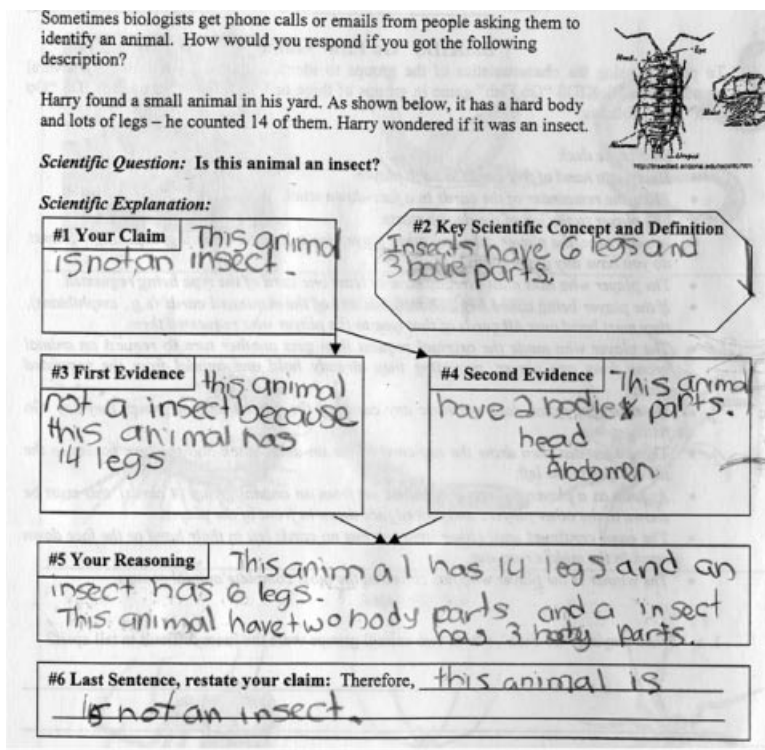 Sometimes biologists get phone calls or emails from people asking them to
identify an animal. How would you respond if you got the following
description?
Harry found a small animal in his yard. As shown below, it has a hard body
and lots of legs – he counted 14 of them. Harry wondered if it was an insect.
Scientific Question: Is this animal an insect?
Scientific Explanation:
#1 Your Claim This animal
is not an insect.
#2 Key Scientific Concept and Definition
Insects have 6 legs and
3 bodie parts.
#3 First Evidence this animal
not a insect because
this animal has
14 legs
#4 Second Evidence This animal
have 2 bodies parts.
head
Abdomen
#5 Your Reasoning This animal has 14 legs and an
insect has 6 legs.
This animal have two body parts and a insect
has 3 body parts.
#6 Last Sentence, restate your claim: Therefore, this animal is
is not an insect.